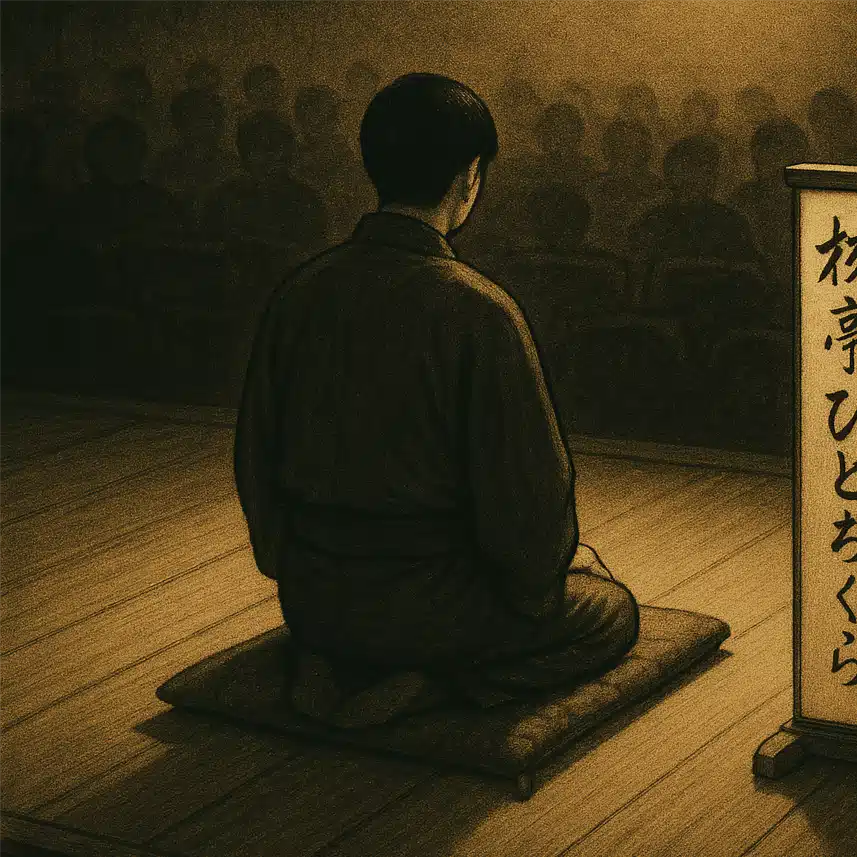 亭ひとちくら